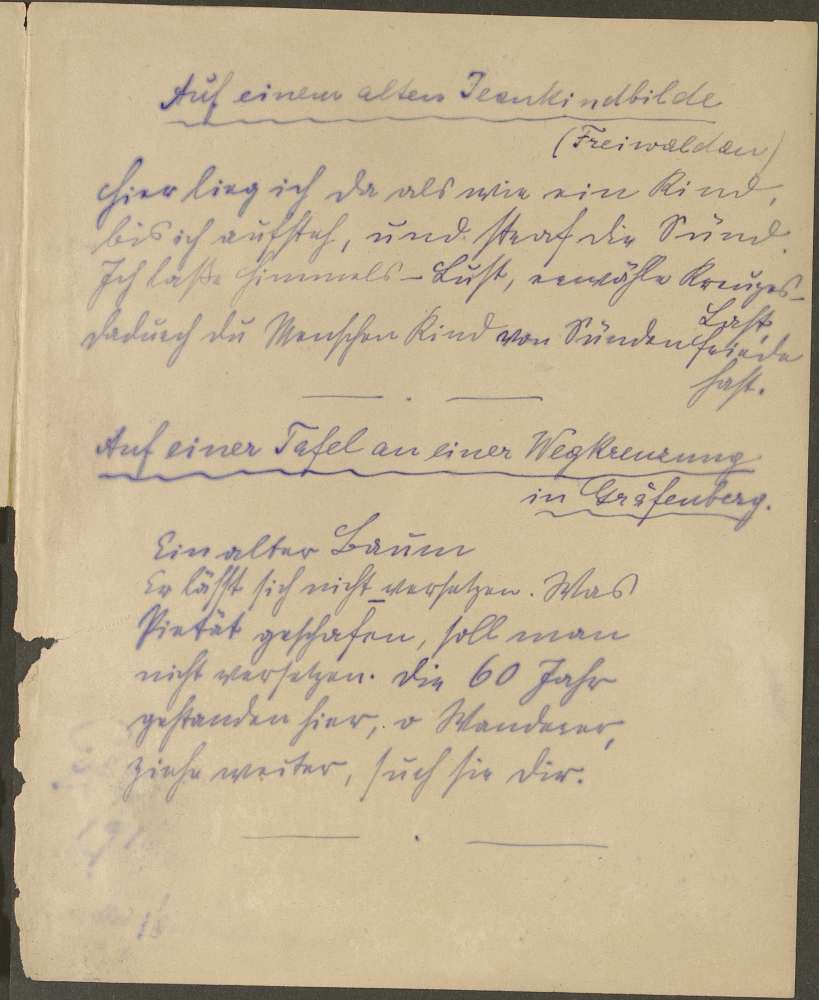 Auf einem alten Jesukindbilde
(Freiwaldau)
Hier lieg ich da als wie ein Kind,
bis ich aufsteh, und straf die Sünd.
Ich laße Himmels-Lust, erwähle Kreuzes-
Last,
dadurch du Menschen Kind von Sünden Friede
hast.
Auf einer Tafel an einer Wegkreuzung
in Gräfenberg.
Ein alter Baum
Er läßt sich nicht versetzen. Was
Pietät geschafen, soll man
nicht versetzen. Die 60 Jahr
gestanden hier, o Wanderer,
ziehe weiter, such sie dir.